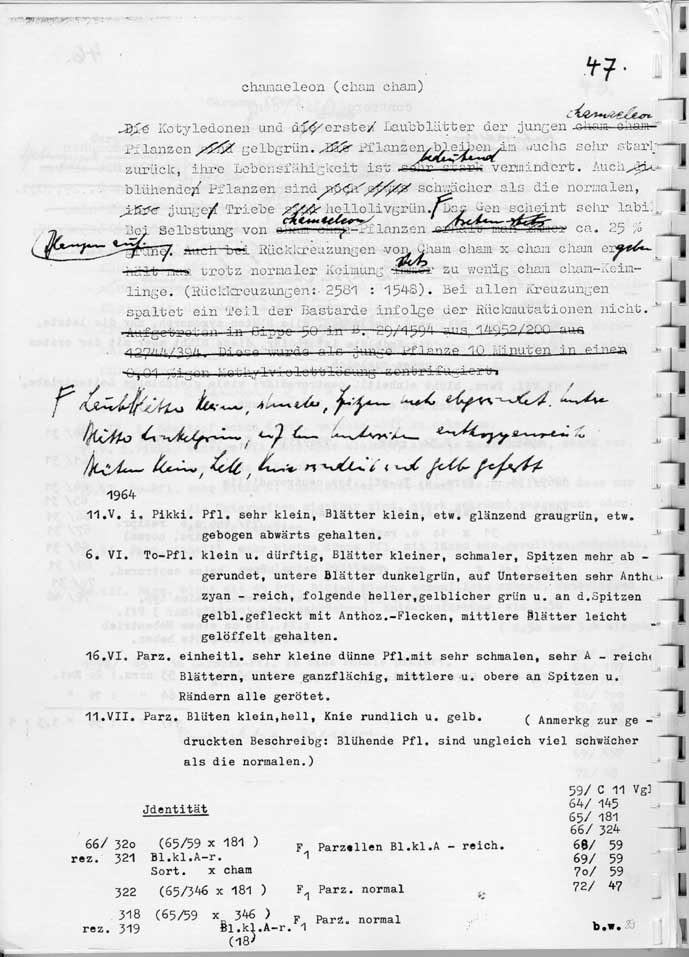 47.
chamaeleon (cham cham)
chamaeleon
Die Kotyledonen und die ersten Laubblätter der jungen cham cham-
Pflanzen sind gelbgrün. Die Pflanzen bleiben im Wuchs sehr stark
bedeutend
zurück, ihre Lebensfähigkeit ist sehr stark vermindert. Auch die
blühenden Pflanzen sind noch schwächer als die normalen,
ihre jungen Triebe sind hellolivgrün. F Das Gen scheint sehr labil
chamaeleon treten stets
Bei Selbstung von cham cham-Pflanzen erhält man immer ca. 25 %
Pflanzen auf.
grüne. Auch bei Rückkreuzungen von Cham cham x cham cham ergeben
stets
hält man trotz normaler Keimung immer zu wenig cham cham-Keim-
linge. (Rückkreuzungen: 2581 : 1548). Bei allen Kreuzungen
spaltet ein Teil der Bastarde infolge der Rückmutationen nicht.
Aufgetreten in Sippe 50 in B. 29/1594 aus 14952/200 aus
12744/394. Diese wurde als junge Pflanze 10 Minuten in einer
0,01 %igen Methylviolettlösung zentrifugiert.
F Laubblätter kleiner, schmaler, Spitzen mehr abgerundet. untere
Blätter dunkelgrün, auf den Unterseiten anthozyanreich
Blüten klein, hell, Knie rundlich und gelb gefärbt
1964
11.V. i. Pikki. Pfl. sehr klein, Blätter klein, etw. glänzend graugrün, etw.
gebogen abwärts gehalten.
6. VI. To-Pfl. klein u. dürftig, Blätter kleiner, schmaler, Spitzen mehr ab -
gerundet, untere Blätter dunkelgrün, auf Unterseiten sehr Antho
zyan - reich, folgende heller,gelblicher grün u. an d.Spitzen
gelbl.gefleckt mit Anthoz.-Flecken, mittlere Blätter leicht
gelöffelt gehalten.
16.VI. Parz. einheitl. sehr kleine dünne Pfl.mit sehr schmalen, sehr A - reiche
Blättern, untere ganzflächig, mittlere u. obere an Spitzen u.
Rändern alle gerötet.
11.VII. Parz. Blüten klein,hell, Knie rundlich u. gelb. ( Anmerkg zur ge -
druckten Beschreibg: Blühende Pfl. sind ungleich viel schwächer
als die normalen.)
59/ C 11 Vgl
64/ 145
65/ 181
66/ 324
68/ 59
69/ 59
70/ 59
72/ 47
Jdentität
66/ 320 (65/59 x 181 ) F1 Parzellen Bl.kl.A - reich.
rez. 321 Bl.kl.A-r.
Sort. x cham
322 (65/346 x 181 ) F1 Parz. normal
318 (65/59 x 346 ) F1 Parz. normal
rez. 319 Bl.kl.A-r.
(18)
b.w.